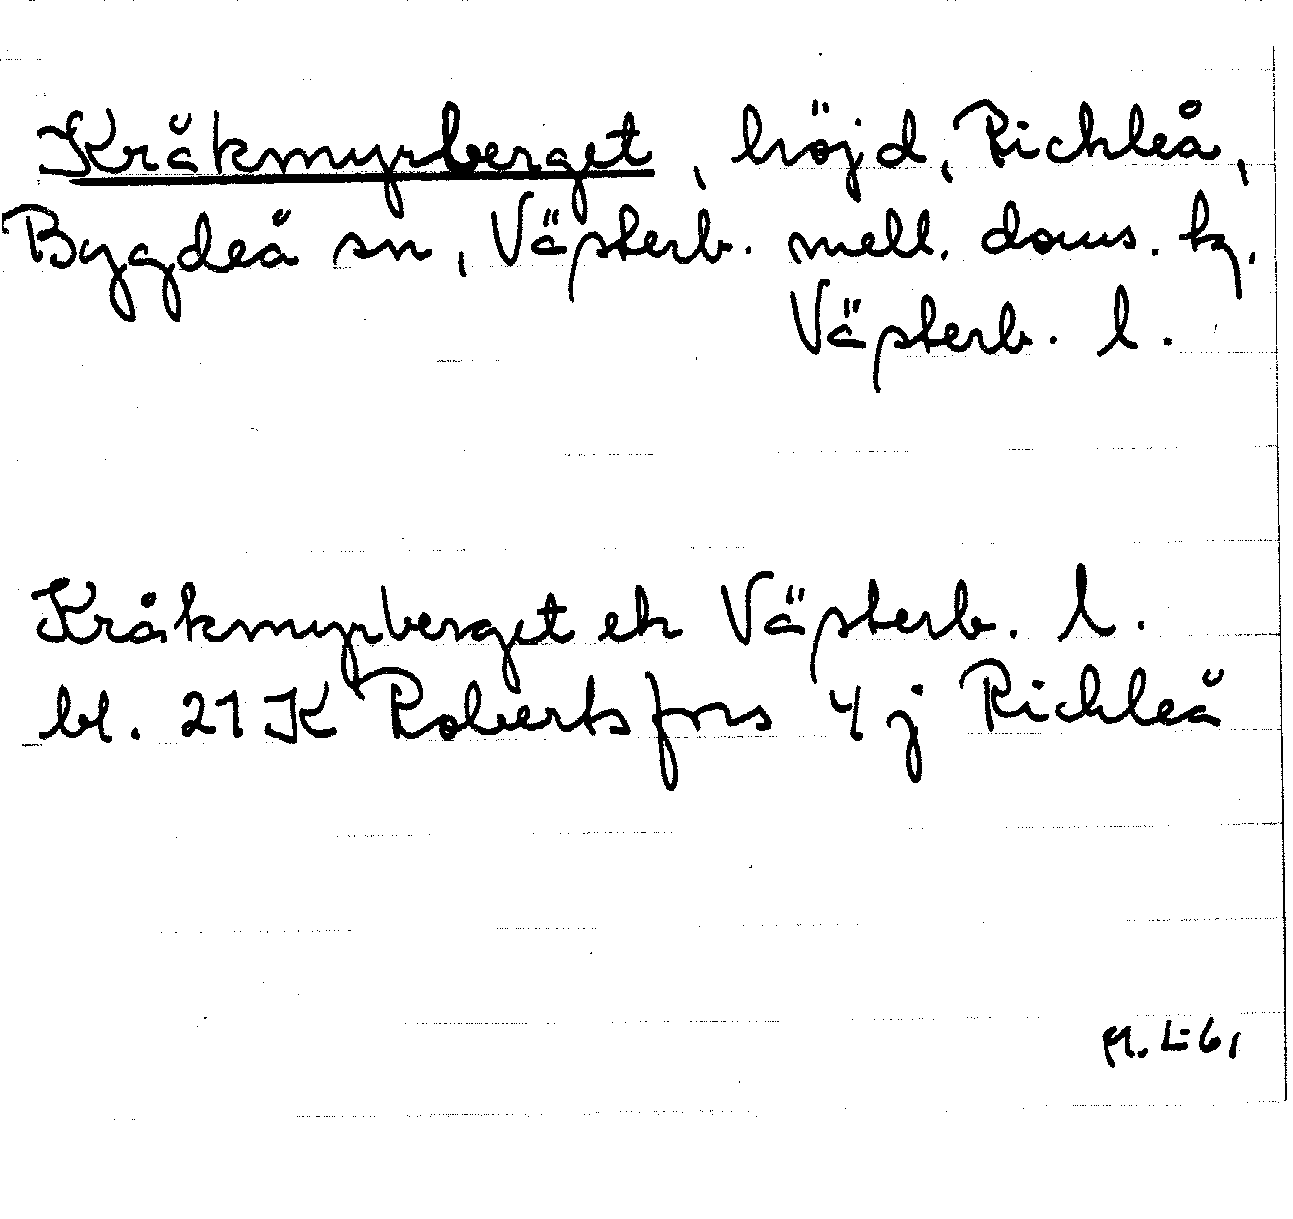 Kråkmyrberget, höjd, Rickleå,
Bygdeå sn, Västerb. mell. doms. tg,
Västerb. l.
Kråkmyrberget ek Västerb. l.
bl. 21K Robertsfors 4 j Rickleå